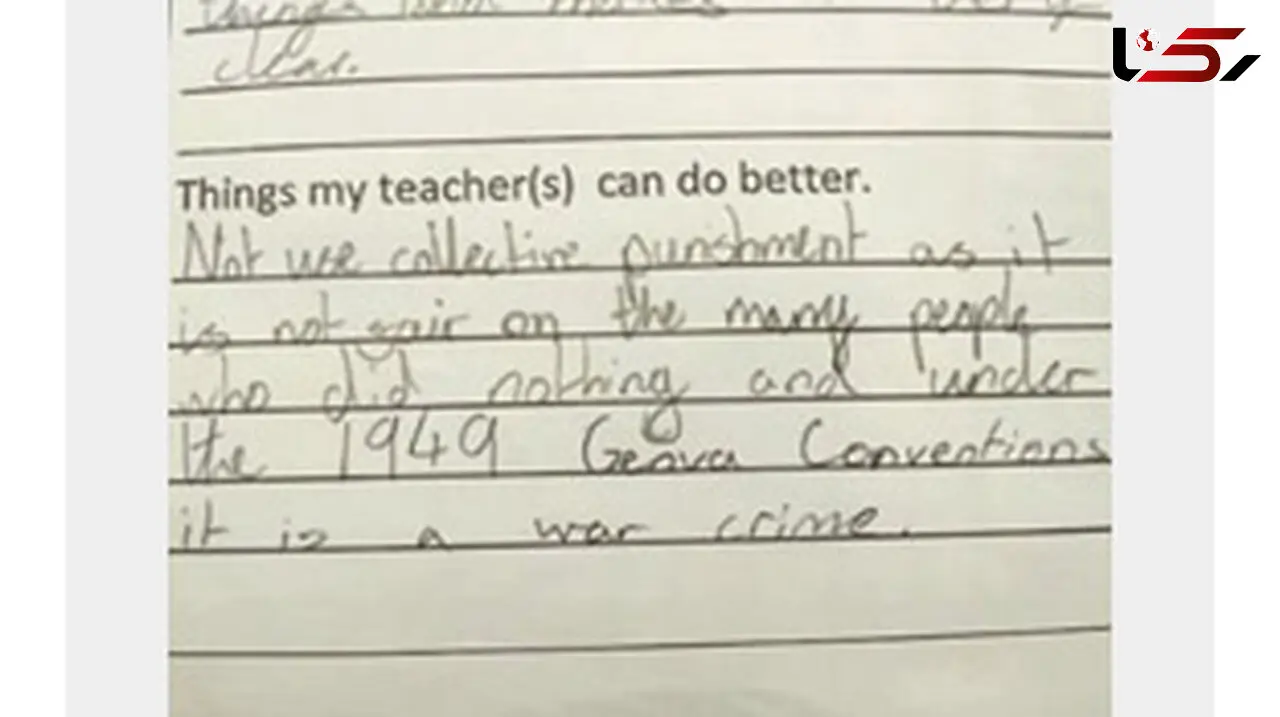 things
clear.
Things my teacher(s) can do better.
Not use collective punishment as it
is not fair on the many people
who did nothing and under
the 1949 Geneva Conventions
it is a war crime.